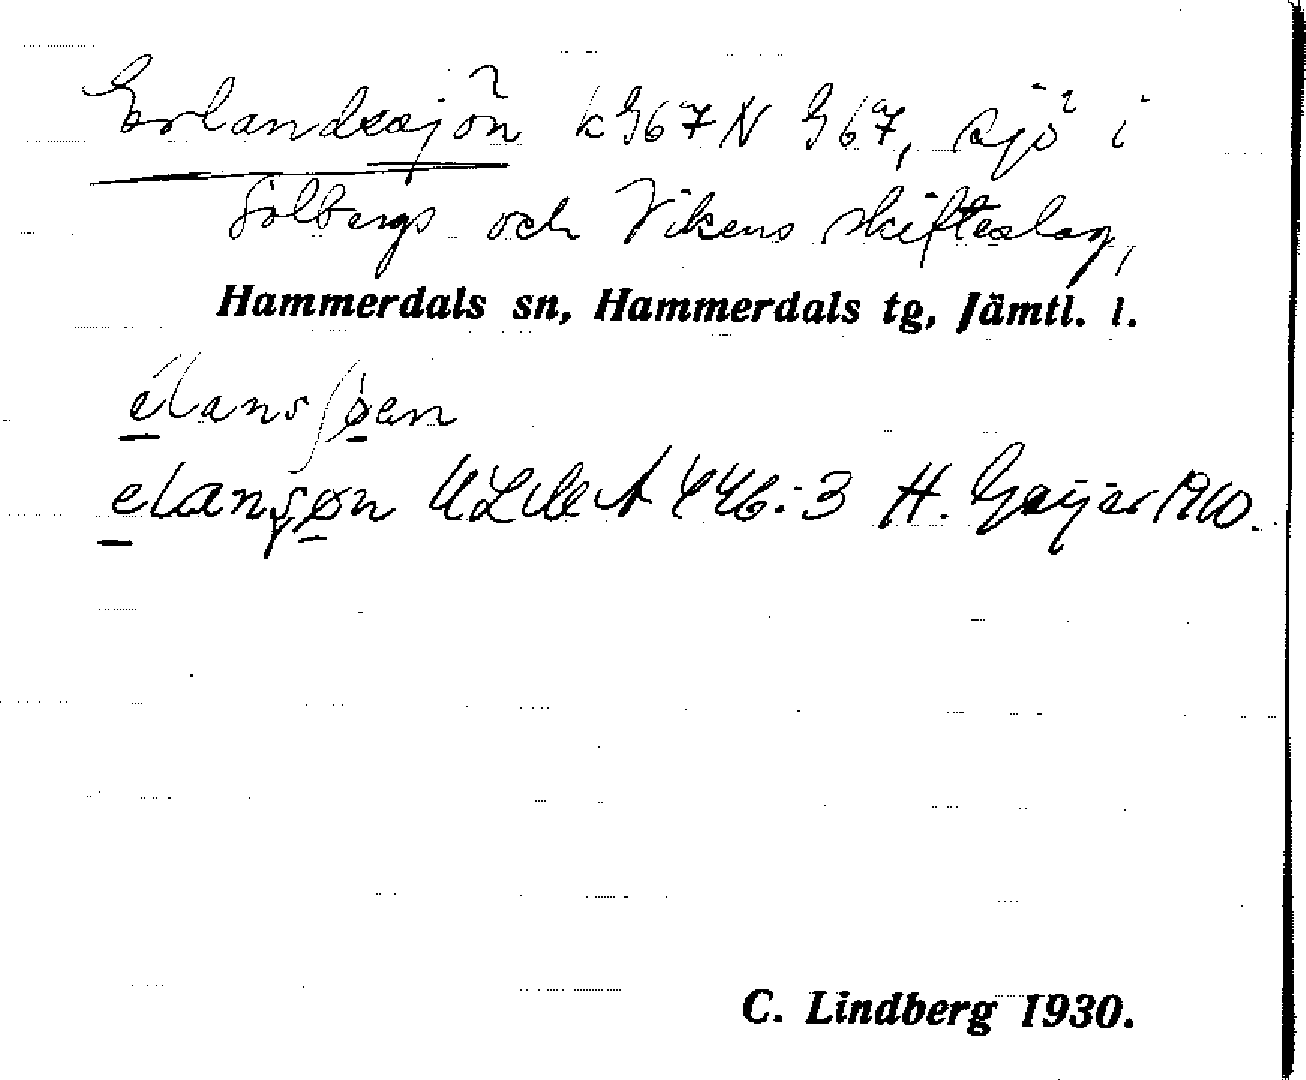 Erlandssjön k G67 N G67, sjö i
Solbergs och Vikens skifteslag,
Hammerdals sn, Hammerdals tg, Jämtl. l.
élansʃøen
elansøn ULMA 446:3 H. Geijer 1910.
C. Lindberg 1930.